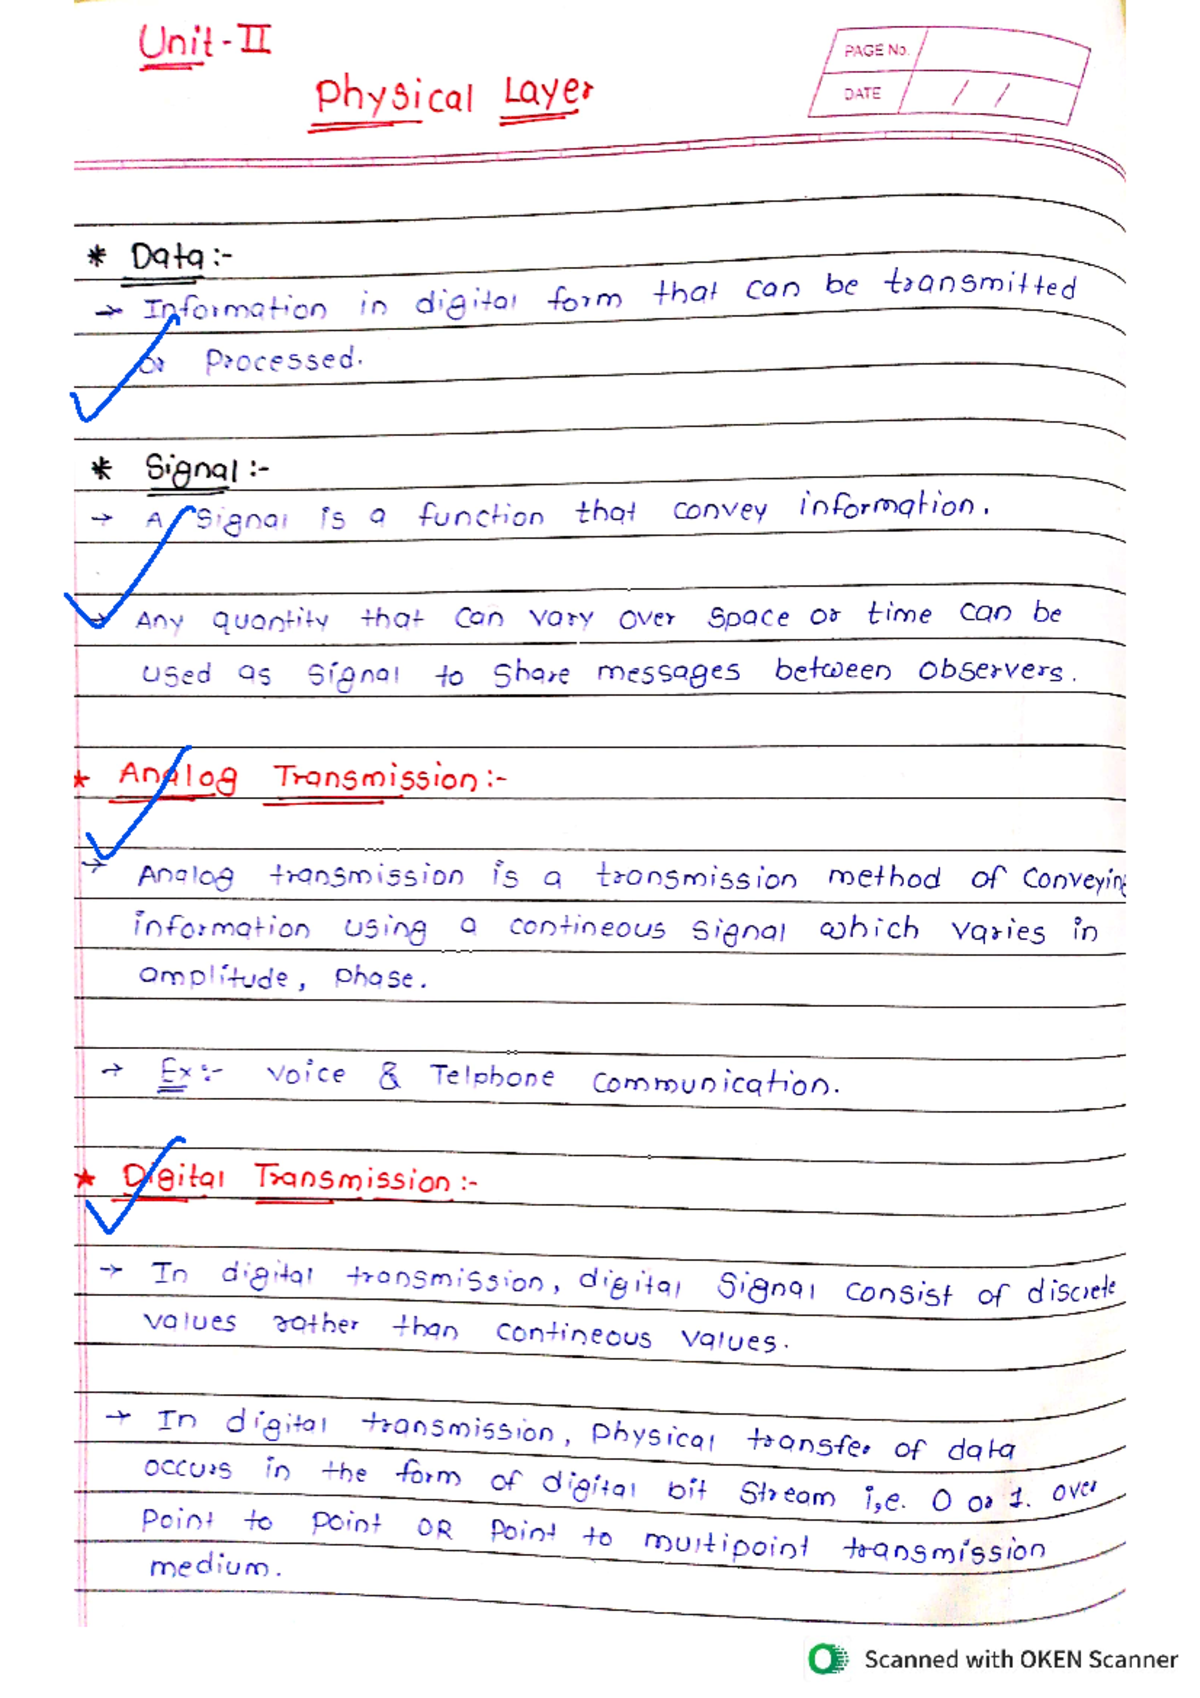 Unit-II
Physical Layer
PAGE No.
DATE / /
* Data:-
→ Information in digital form that can be transmitted
or Processed.
* Signal:-
→ A Signal is a function that convey information.
→ Any quantity that can vary over space or time can be
used as signal to share messages between observers.
* Analog Transmission:-
→ Analog transmission is a transmission method of conveying
information using a contineous signal which varies in
amplitude, phase.
→ Ex:- Voice & Telphone communication.
* Digital Transmission:-
→ In digital transmission, digital signal consist of discrete
values rather than contineous values.
→ In digital transmission, physical transfer of data
occurs in the form of digital bit stream i,e. 0 or 1. over
Point to point OR Point to multipoint transmission
medium.
Scanned with OKEN Scanner